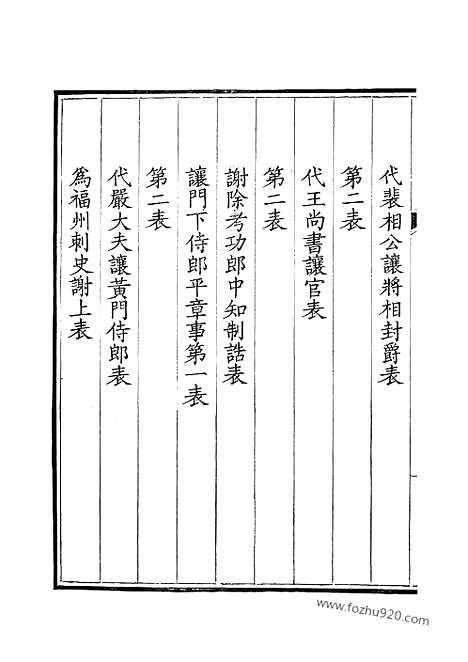 代裴相公讓將相封爵表
第二表
代王尚書讓官表
第二表
謝除考功郎中知制誥表
讓門下侍郎平章事第一表
第二表
代嚴大夫讓黃門侍郎表
為福州刺史謝上表
www.fozhu920.com